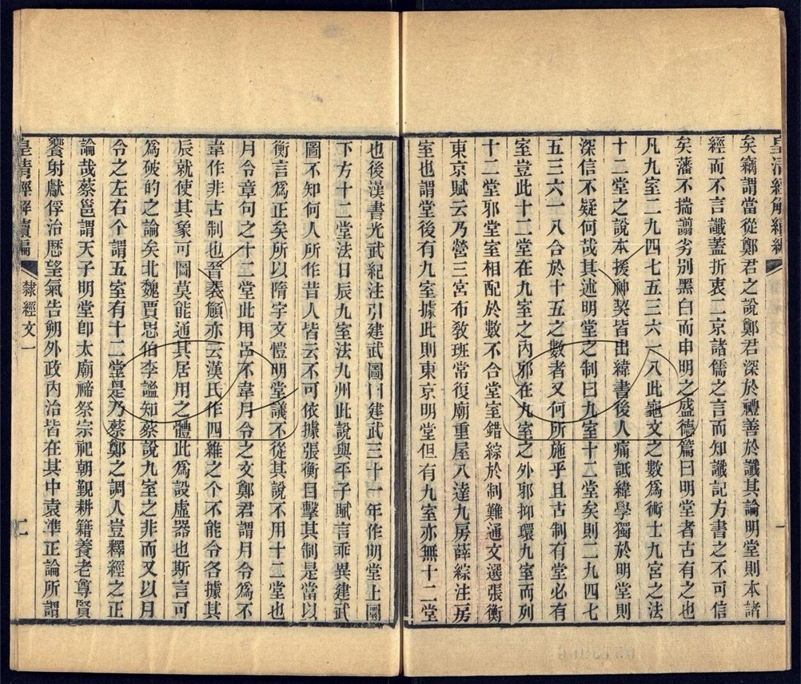 皇清經解續編
矣竊謂當從鄭君之說鄭君深於禮善於讖其論明堂則本諸
經而不言讖蓋折衷二京諸儒之言而知讖記方書之不可信
矣藩不揣譾劣別黑白而申明之盛德篇曰明堂者古有之也
凡九室二九四七五三六一八此龜文之數為術士九宮之法
十二堂之說本援神契皆出緯書後人痛詆緯學獨於明堂則
深信不疑何哉其述明堂之制曰九室十二堂矣則二九四七
五三六一八合於十五之數者又何所施乎且古制有堂必有
室豈此十二堂在九室之內邪在九室之外邪抑環九室而列
十二堂邪堂室相配於數不合堂室錯綜於制難通文選張衡
東京賦云乃營三宮布敎班常復廟重屋八達九房薛綜注房
室也謂堂後有九室據此則東京明堂但有九室亦無十二堂
也後漢書光武紀注引建武圖曰建武三十一年作明堂上圓
下方十二堂法日辰九室法九州此說與平子賦言乖異建武
圖不知何人所作昔人皆云不可依據張衡目擊其制是當以
衡言為正矣所以隋宇文愷明堂議不從其說不用十二堂也
月令章句之十二堂此用呂不韋月令之文鄭君謂月令為不
韋作非古制也晉裴頠亦云漢氏作四維之个不能令各據其
辰就使其象可圖莫能通其居用之體此為設虛器也斯言可
為破的之論矣北魏賈思伯李謐知蔡說九室之非而又以月
令之左右个謂五室有十二堂是乃蔡鄭之調人豈釋經之正
論哉蔡邕謂天子明堂卽太廟禘祭宗祀朝覲耕籍養老尊賢
饗射獻俘治曆望氣告朔外政內治皆在其中袁準正論所謂
皇清經解續編
隸經文一